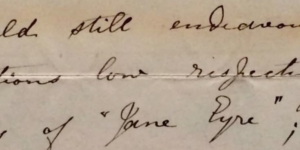 ld still endeavou
tions low respecti
of "Jane Eyre";